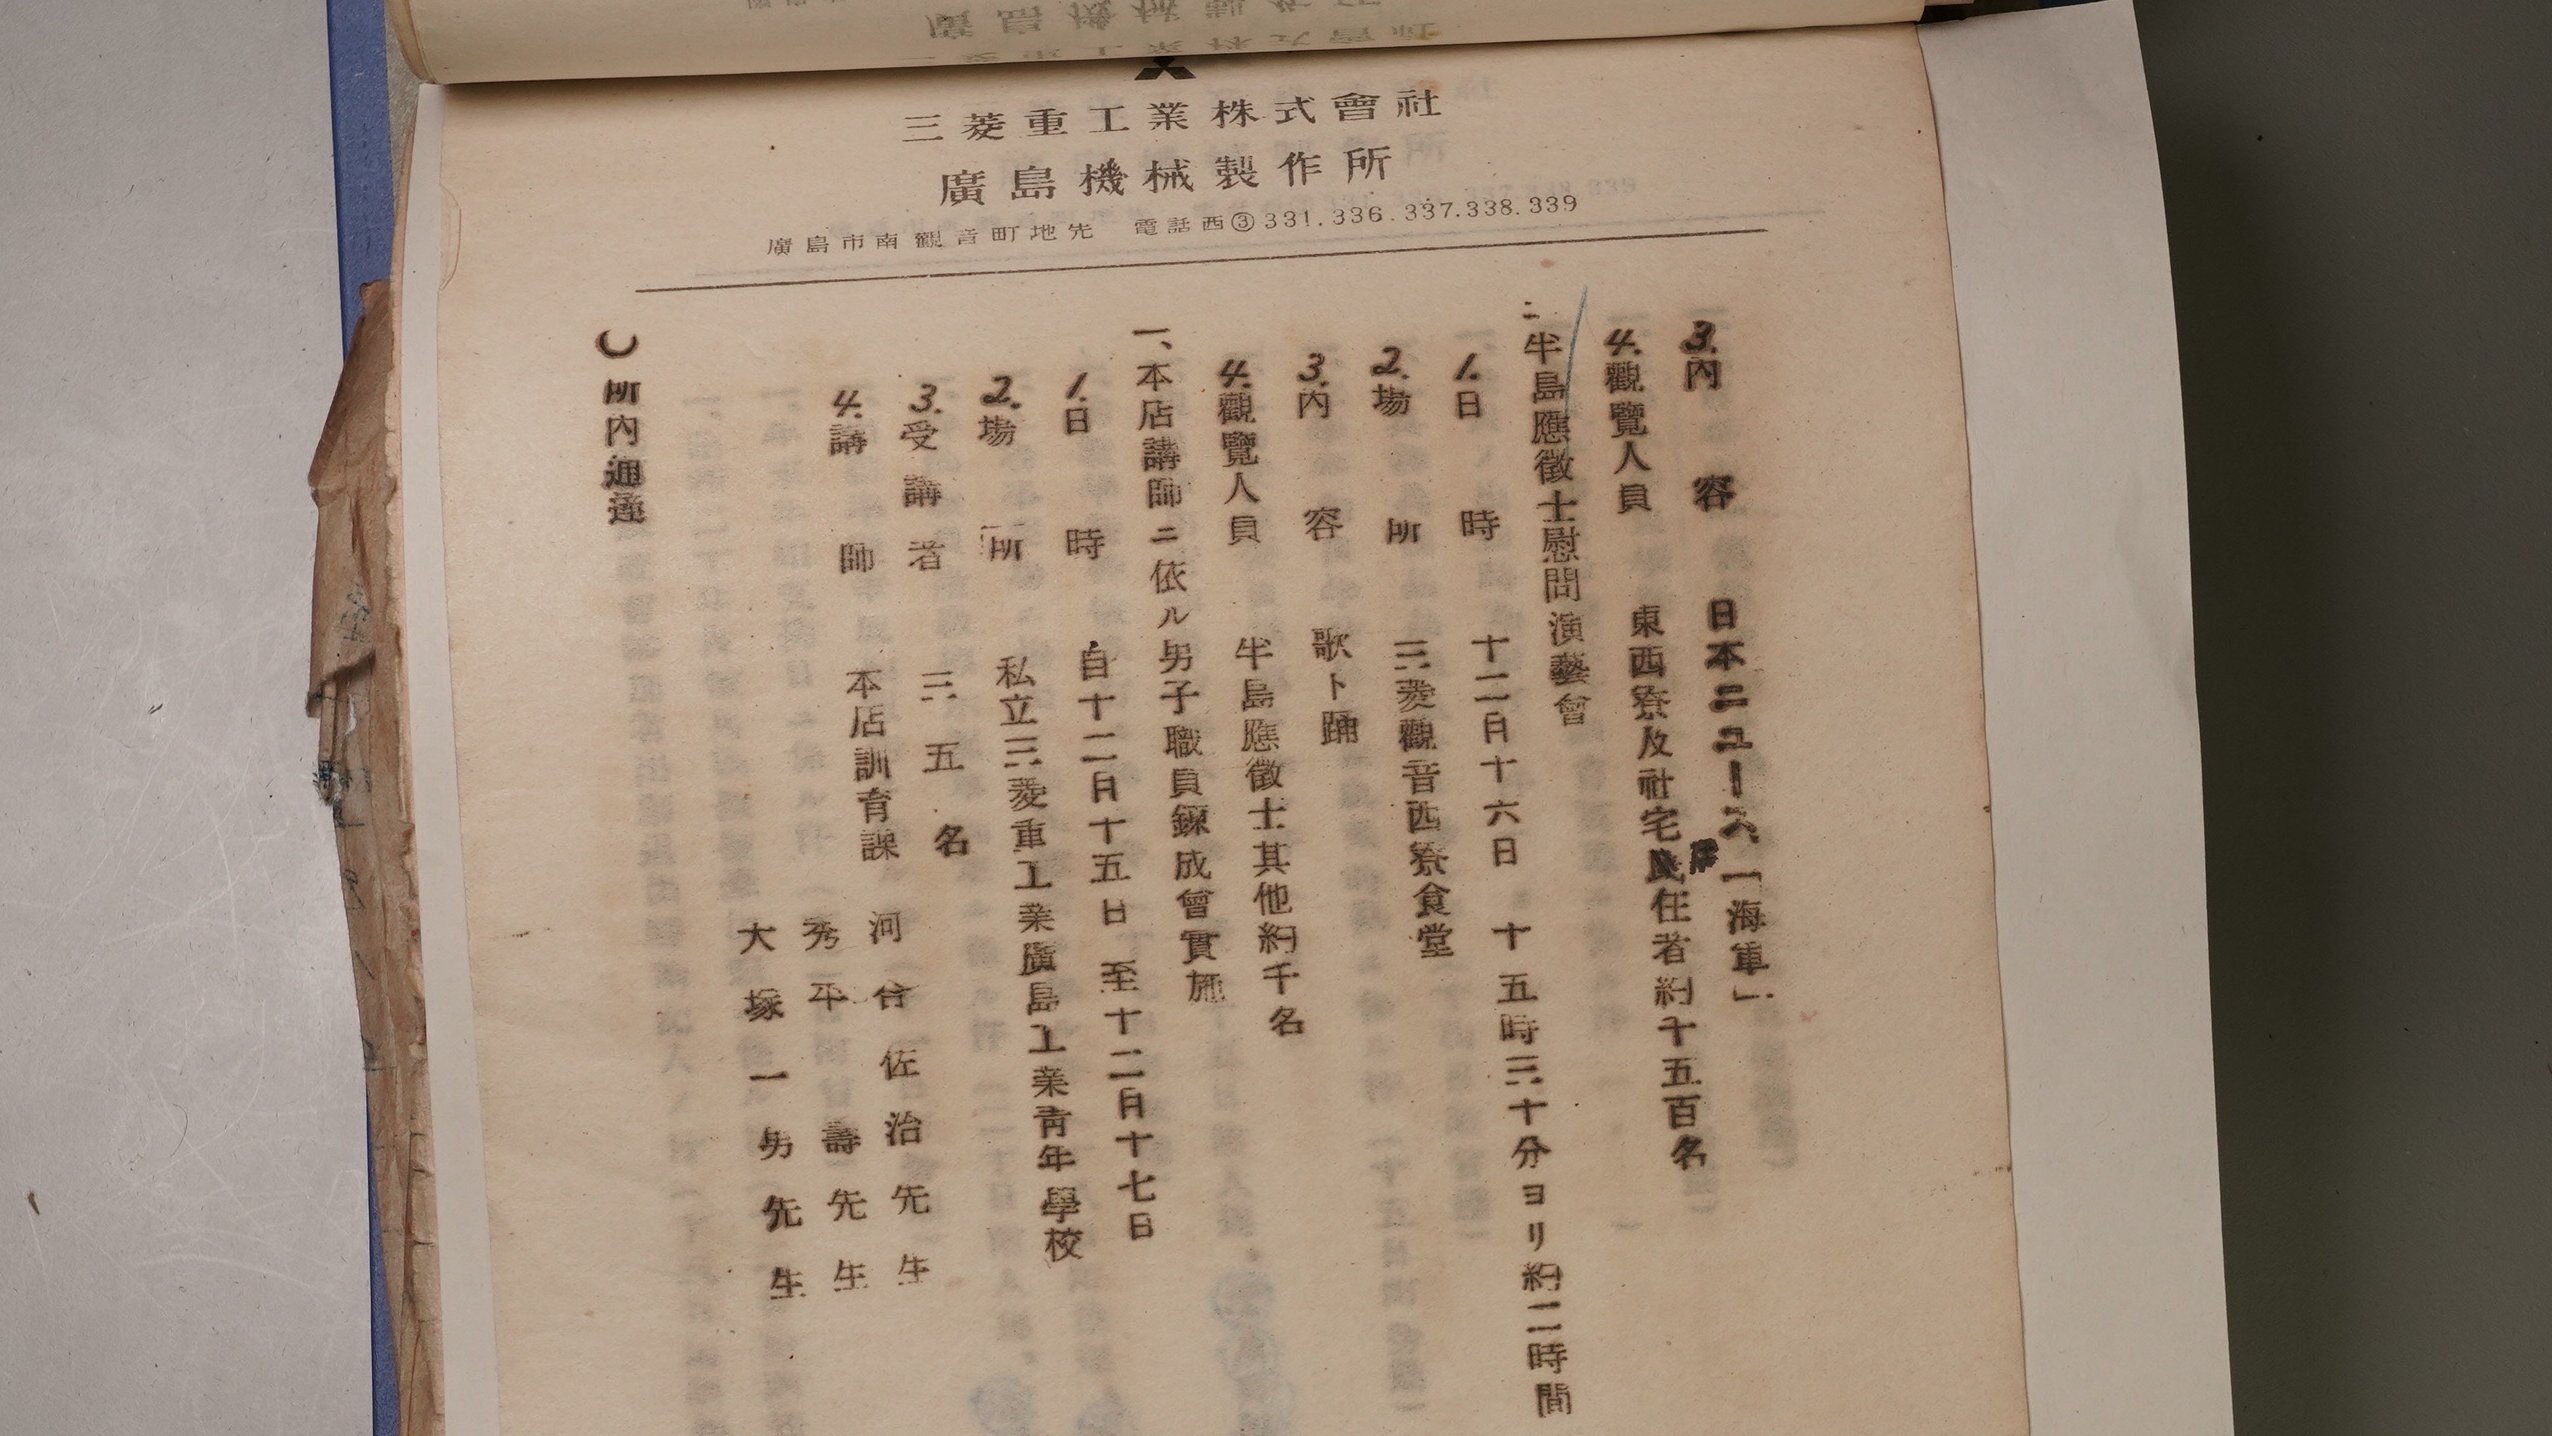 三菱重工業株式會社
廣島機械製作所
廣島市南觀音町地先 電話西③331.336.337.338.339
3.內 容 日本ニュース「海軍」
4.觀覽人員 東西寮及社宅居住者約千五百名
二、半島應徵士慰問演藝會
1.日 時 十二月十六日 十五時三十分ヨリ約二時間
2.場 所 三菱觀音西寮食堂
3.內 容 歌ト踊
4.觀覽人員 半島應徵士其他約千名
一、本店講師ニ依ル男子職員鍊成會實施
1.日 時 自十二月十五日 至十二月十七日
2.場 所 私立三菱重工業廣島工業靑年學校
3.受講者 三五名
4.講 師 本店訓育課 河合佐治先生
秀平壽先生
大塚一男先生
○所內通達